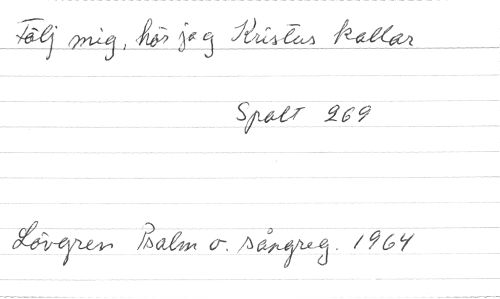 Följ mig, hör jag Kristus kallar
Spalt 269
Lövgren Psalm o. sångreg. 1964